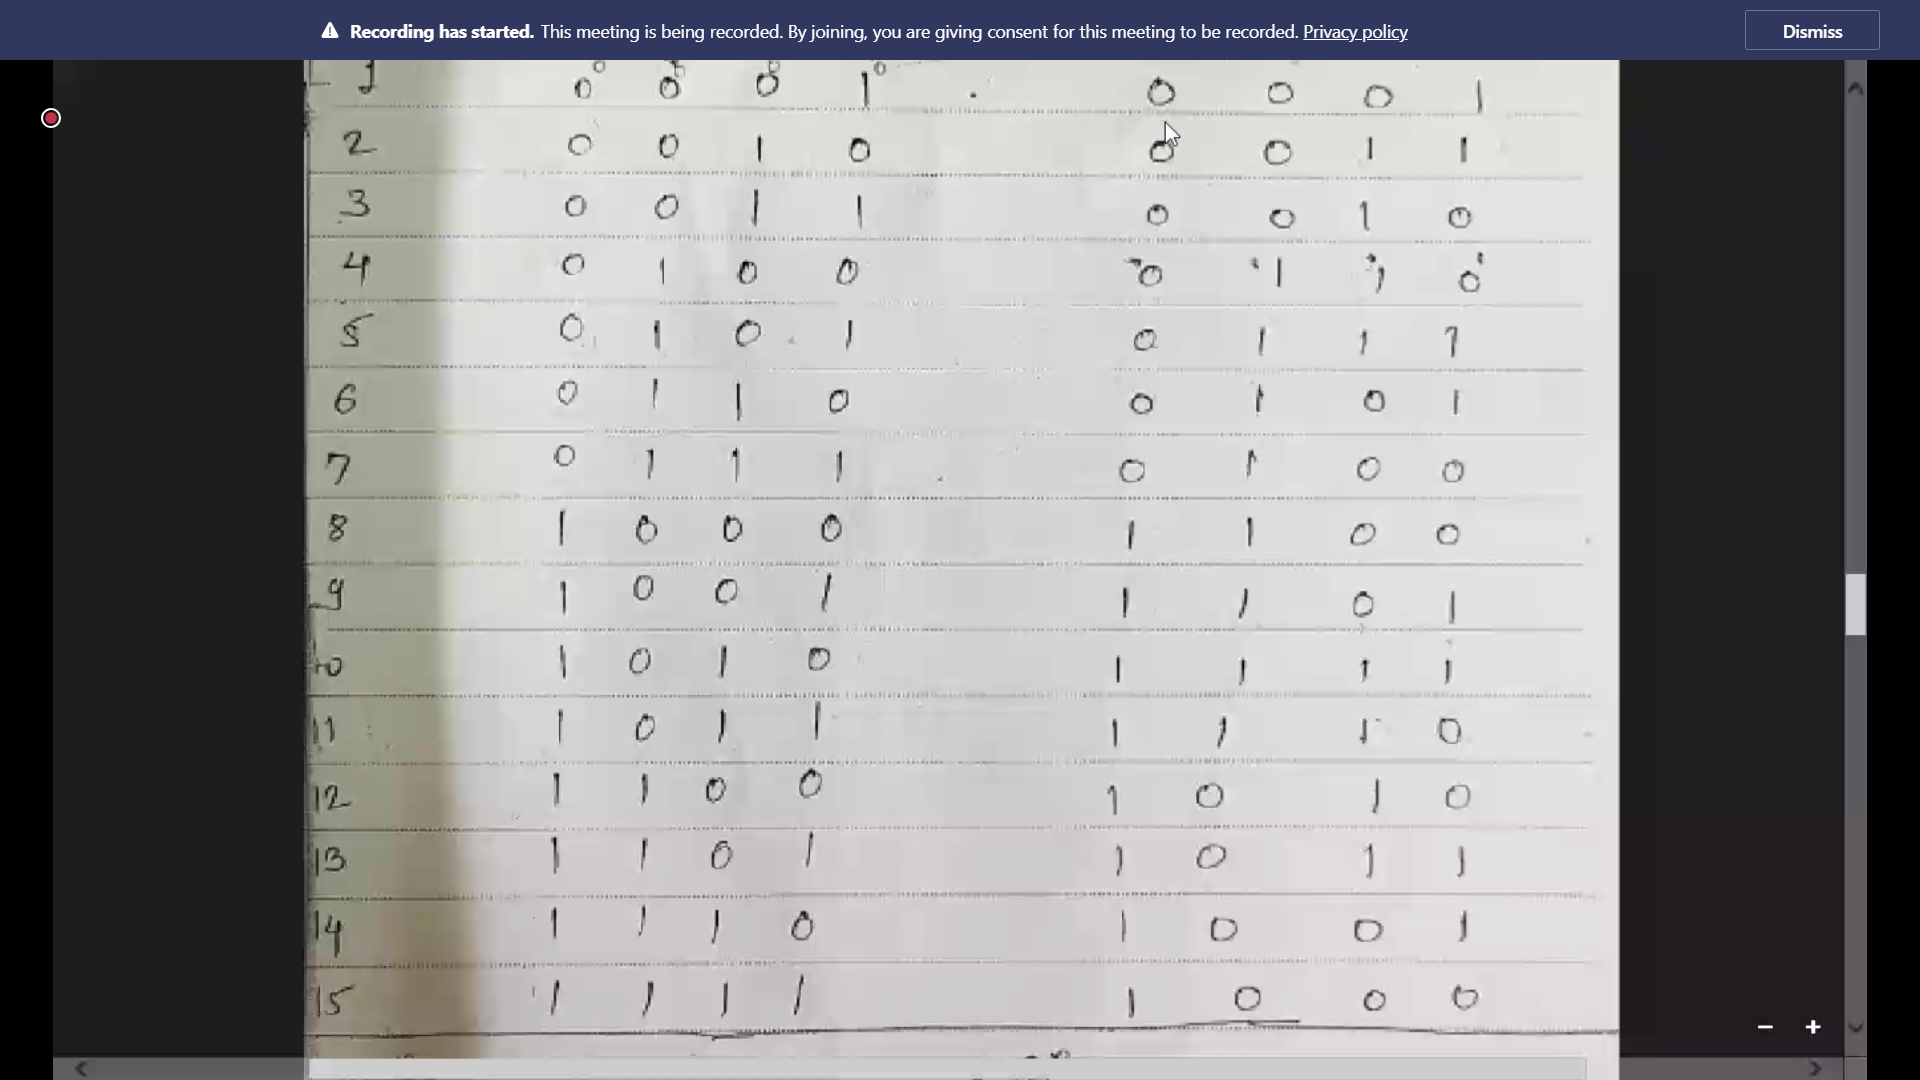 Recording has started. This meeting is being recorded. By joining, you are giving consent for this meeting to be recorded. Privacy policy Dismiss
1 0 0 0 1 0 0 0 1
2 0 0 1 0 0 0 1 1
3 0 0 1 1 0 0 1 0
4 0 1 0 0 0 1 1 0
5 0 1 0 1 0 1 1 1
6 0 1 1 0 0 1 0 1
7 0 1 1 1 0 1 0 0
8 1 0 0 0 1 1 0 0
9 1 0 0 1 1 1 0 1
10 1 0 1 0 1 1 1 1
11 1 0 1 1 1 1 1 0
12 1 1 0 0 1 0 1 0
13 1 1 0 1 1 0 1 1
14 1 1 1 0 1 0 0 1
15 1 1 1 1 1 0 0 0